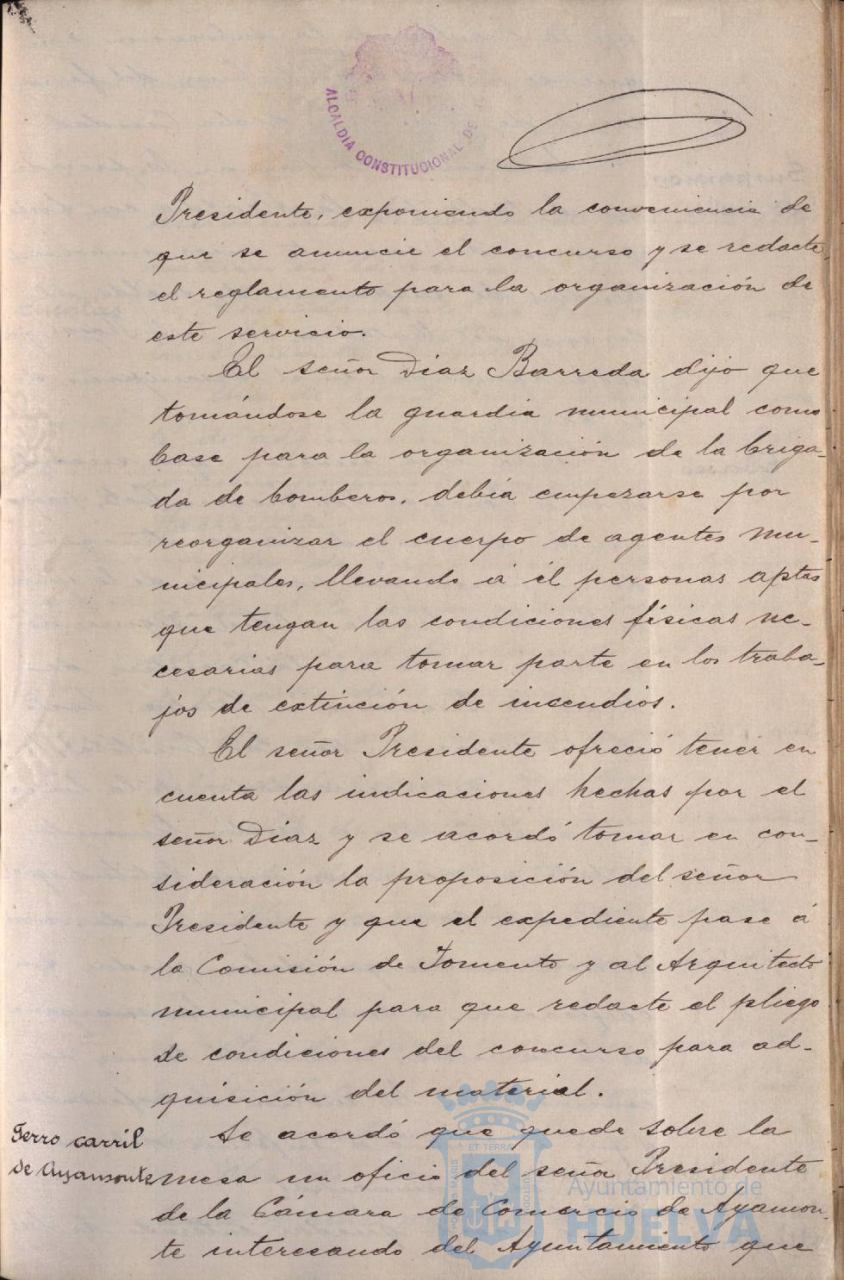 ALCALDIA CONSTITUCIONAL DE
Presidente, exponiendo la conveniencia de
que se anuncie el concurso y se redacte
el reglamento para la organización de
este servicio.
El señor Díaz Barreda dijo que
tomándose la guardia municipal como
base para la organización de la briga-
da de bomberos, debía empezarse por
reorganizar el cuerpo de agentes mu-
nicipales, llevando á él personas aptas
que tengan las condiciones físicas ne-
cesarias para tomar parte en los traba-
jos de extinción de incendios.
El señor Presidente ofreció tener en
cuenta las indicaciones hechas por el
señor Díaz y se acordó tomar en con-
sideración la proposición del señor
Presidente y que el expediente pase á
la Comisión de Fomento y al Arquitecto
municipal para que redacte el pliego
de condiciones del concurso para ad-
quisición del material.
Ferro carril
de Ayamonte
Se acordó que quede sobre la
mesa un oficio del señor Presidente
de la Cámara de Comercio de Ayamon-
te interesando del Ayuntamiento que
Ayuntamiento de
HUELVA